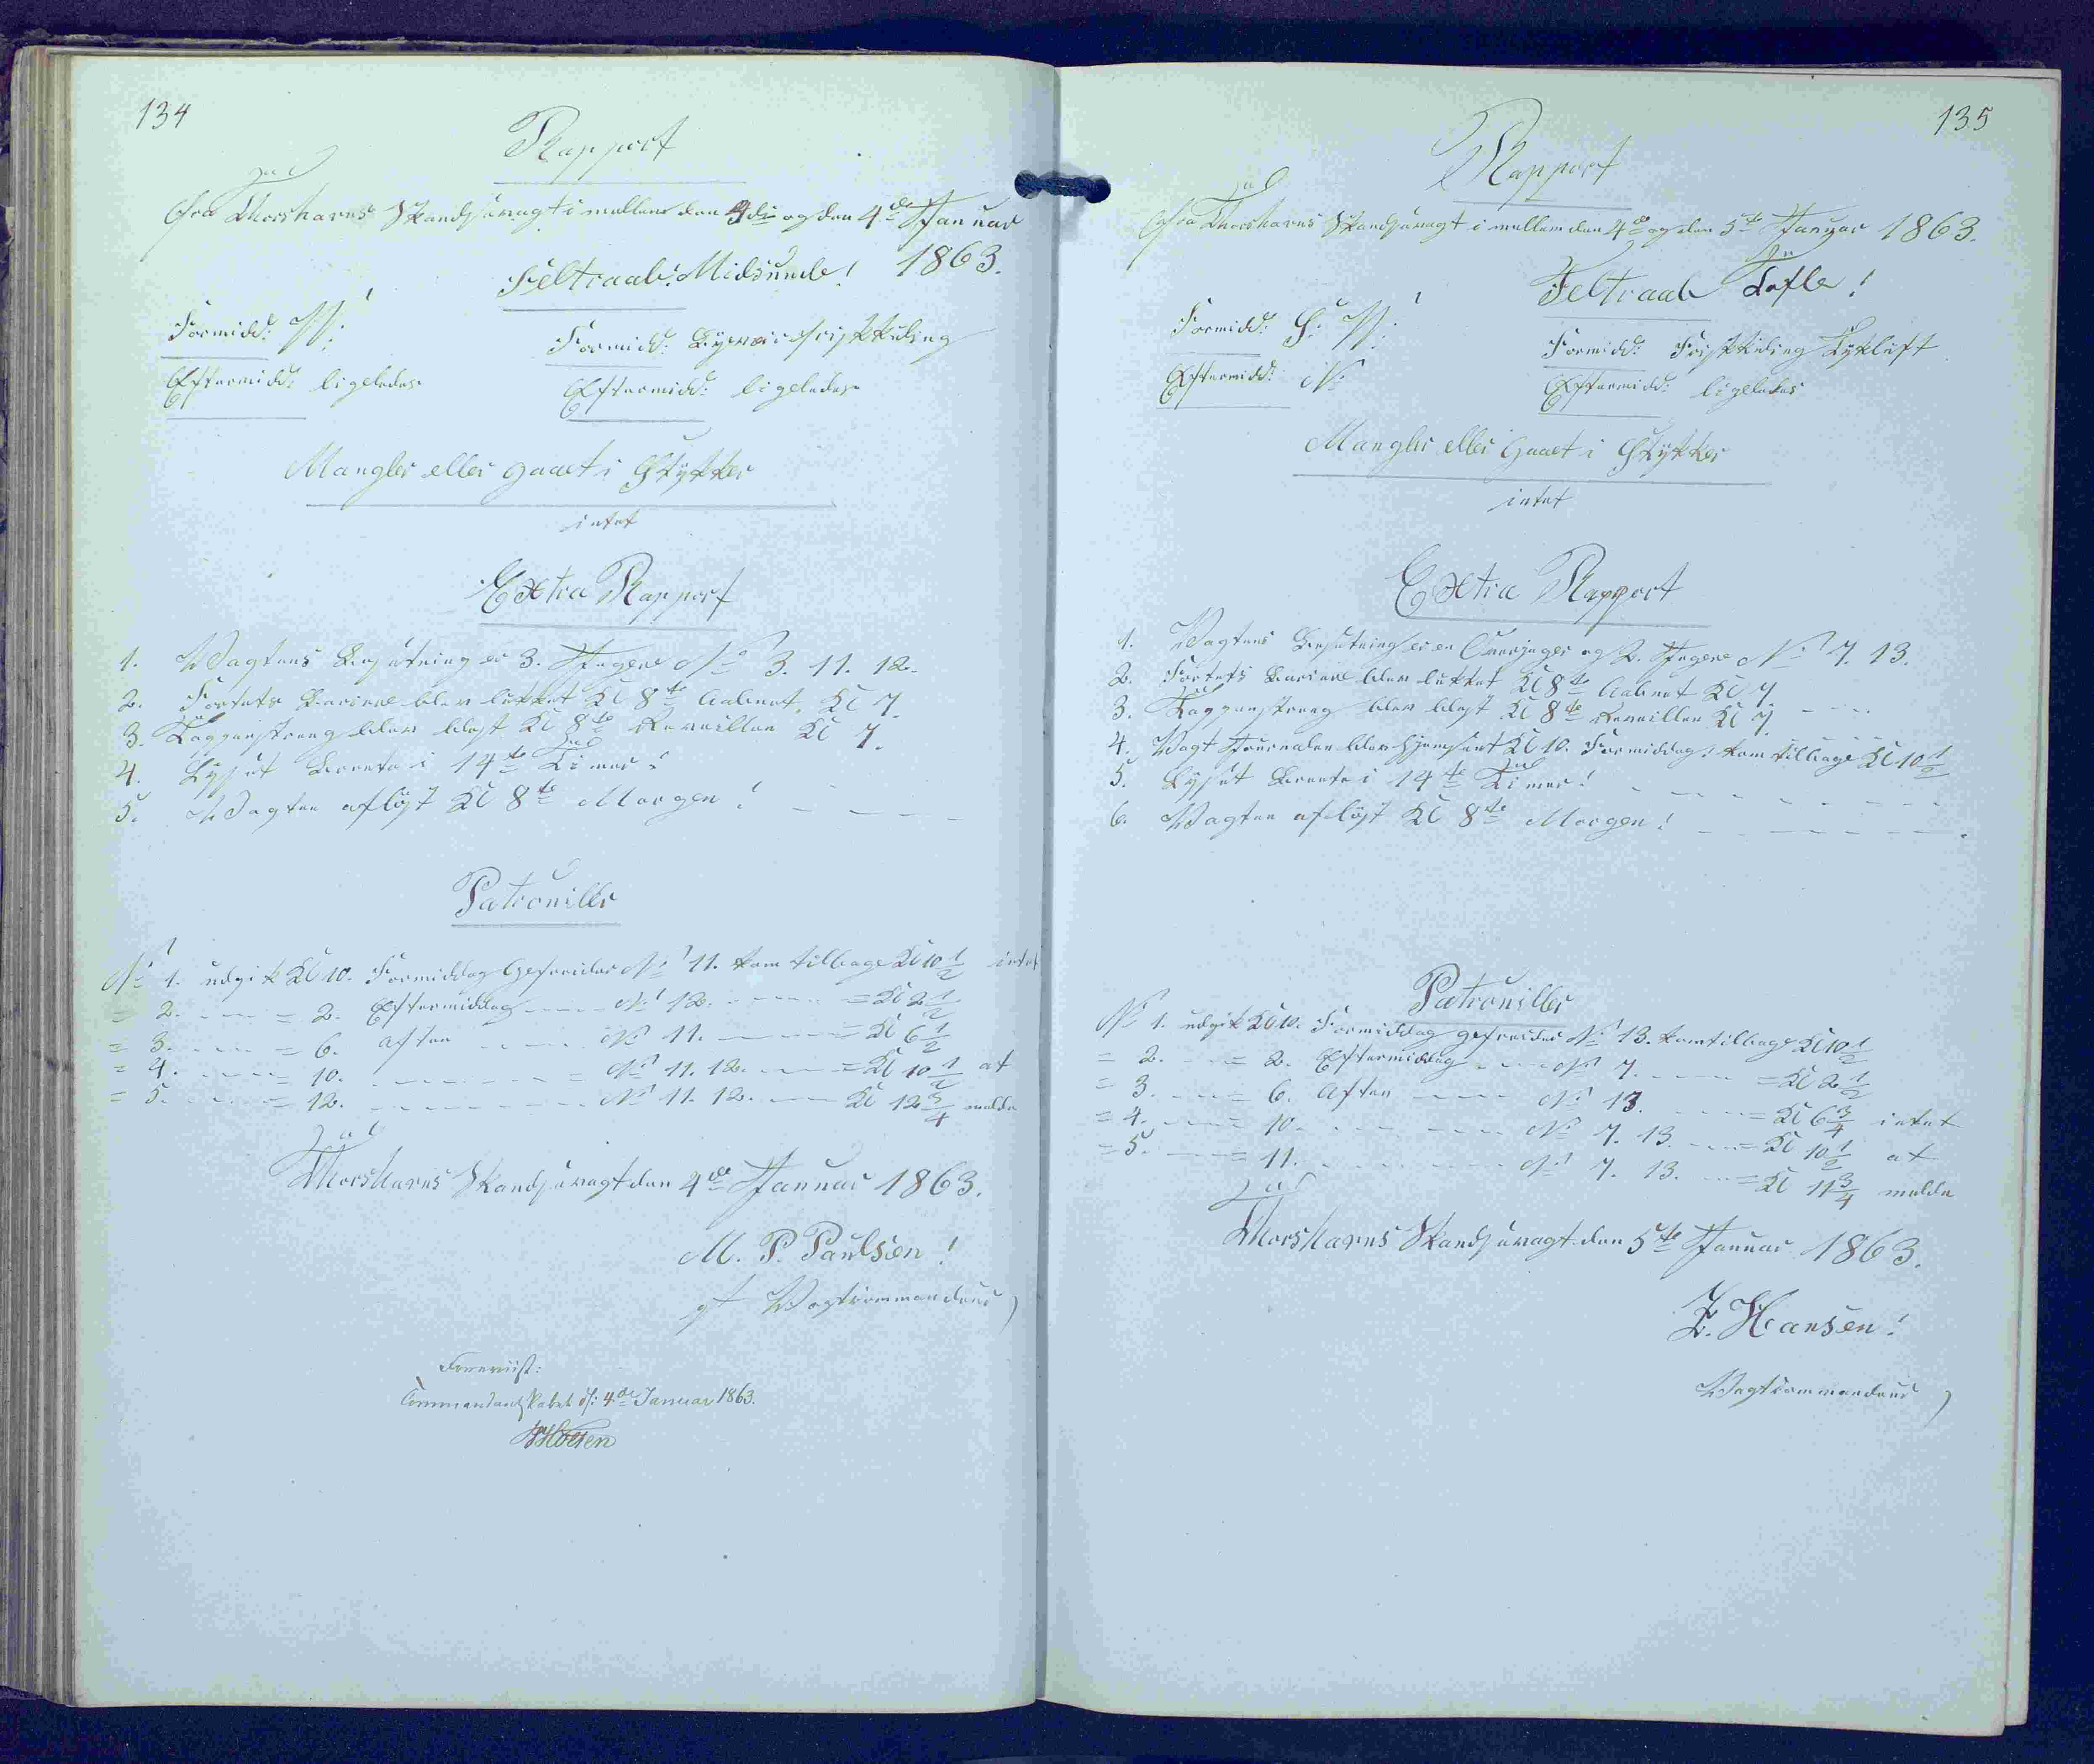 134
Rapport
fra Thorshavns Skandsevagt i mellem den 3die og den 4de Januar
1863.
Feltraab: Midsunde!
Formidd: W:
Formidd: Bygeveir frisk Kuling
Eftermidd: ligeledes
Eftermidd: ligeledes
Mangler eller gaaet i Stykker
intet
Extra Rapport
1. Vagtens Besætning er 3. Jægere No 3. 11. 12.
2. Fortets Barriere blev lukket Kl 8te Aabnet. Kl 7.
3. Tappenstreng blev blæst Kl 8te Reveillen Kl 7.
4. Lyset brente i 14te Timer!
5. Vagten afløst Kl 8te Morgen!
Patrouiller
No 1. udgik Kl 10. Formiddag Gefreider No 11. kom tilbage Kl 10 1/2 intet
= 2. = 2. Eftermiddag No 12. = Kl 2 1/2
= 3. = 6. Aften No 11. = Kl 6 1/2
= 4. = 10. = No 11. 12. = Kl 10 1/2 at
= 5. = 12. No 11. 12. Kl 12 3/4 melde
Thorshavns Skandsevagt den 4de Januar 1863.
M. P. Paulsen!
gf Vagtcommandeur
Foreviist:
Commandantskabet d: 4de Januar 1863.
135
Rapport
fra Thorshavns Skandsevagt i mellem den 4de og den 5te Januar 1863.
Feltraab Tofte!
Formidd: S: W:
Formidd: Frisk Kuling Tykluft
Eftermidd: N:
Eftermidd: ligeledes
Mangler eller gaaet i Stykker
intet
Extra Rapport
1. Vagtens Besætning er en Overjæger og 2. Jægere No 7. 13.
2. Fortets Barriere blev lukket Kl 8te Aabnet Kl 7.
3. Tappenstreng blev blæst Kl 8te Reveillen Kl 7
4. Vagt Journalen blev hjemsent Kl 10. Formiddag, kom tilbage Kl 10 1/2
5. Lyset brente i 14te Timer!
6. Vagten afløst Kl 8te Morgen!
Patrouiller
No 1. udgik Kl 10. Formiddag gefreider No 13. kom tilbage Kl 10 1/2
= 2. = 2. Eftermiddag No 7. = Kl 2 1/2
= 3. = 6. Aften No 13. = Kl 6 3/4 intet
= 4. = 10. No 7. 13. = Kl 10 1/2 at
= 5. = 11. No 7. 13. = Kl 11 3/4 melde
Thorshavns Skandsevagt den 5te Januar 1863.
Z. Hansen!
Vagtcommandeur